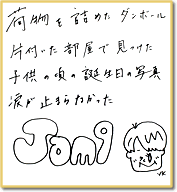 荷物を詰めた ダンボール
片付いた部屋で見つけた
子供の頃の誕生日の写真
涙が止まらなかった
Jam9